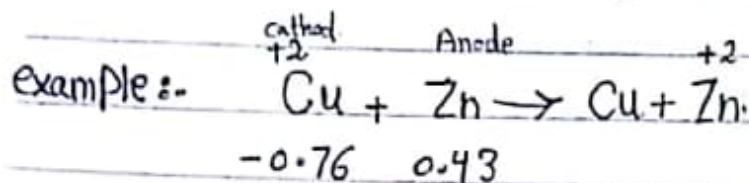 cathod Anode
+2 +2
example:- Cu + Zn → Cu + Zn.
-0.76 0.43